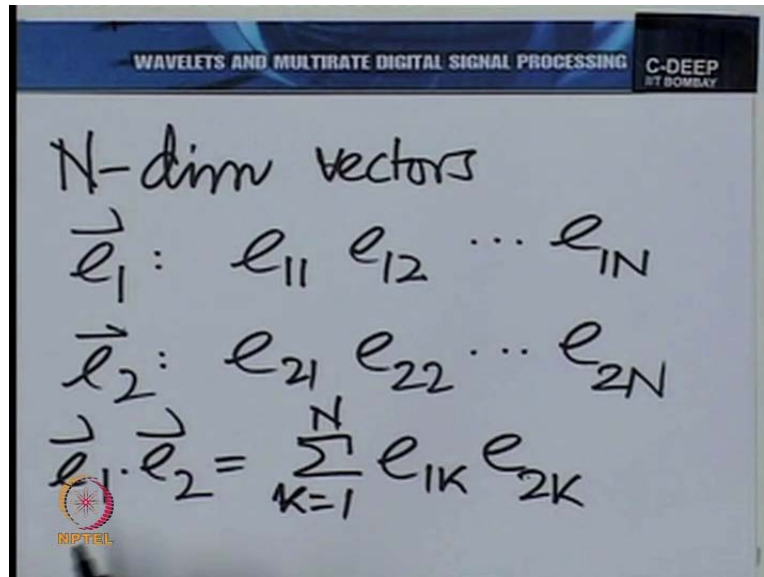 WAVELETS AND MULTIRATE DIGITAL SIGNAL PROCESSING
C-DEEP
IIT BOMBAY
N-dim vectors
e⃗₁ : e₁₁ e₁₂ ⋯ e₁N
e⃗₂ : e₂₁ e₂₂ ⋯ e₂N
e⃗₁ · e⃗₂ = Σ_{K=1}^{N} e₁K e₂K
NPTEL